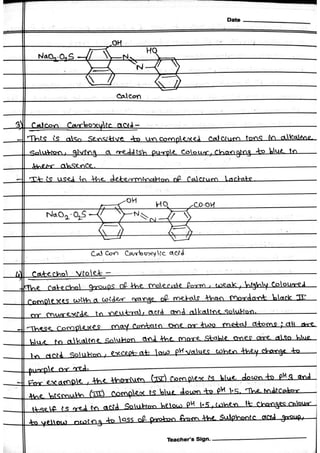 Date
OH
HO
NaO₂O₂S
N
N
Calcon
3) Calcon Carboxylic acid-
- This is also Sensitive to uncomplexed calcium ions in alkaline
Solution, giving a reddish purple colour, changing to blue in
their absence.
- It is used in the determination of Calcium Lactate.
OH
HO
COOH
NaO₂·O₂S
N
N
Calcon Carboxylic acid
4) Catechol Violet -
- The catechol groups of the molecule form, weak, highly Coloured
Complexes with a wider range of metals than mordant black II
or murexide in neutral, acid and alkaline solution.
- These Complexes may contain one or two metal atoms ; all are
blue in alkaline Solution and the more stable ones are also blue
in acid Solution, except at low pH values when they change to
purple or red.
- For example, the thorium (IV) Complex is blue down to pH 2 and
the bismuth (III) complex is blue down to pH 1.5. The indicator
itself is red in acid Solution below pH 1.5, when it changes colour
to yellow owing to loss of proton from the Sulphonic acid group,
Teacher's Sign.